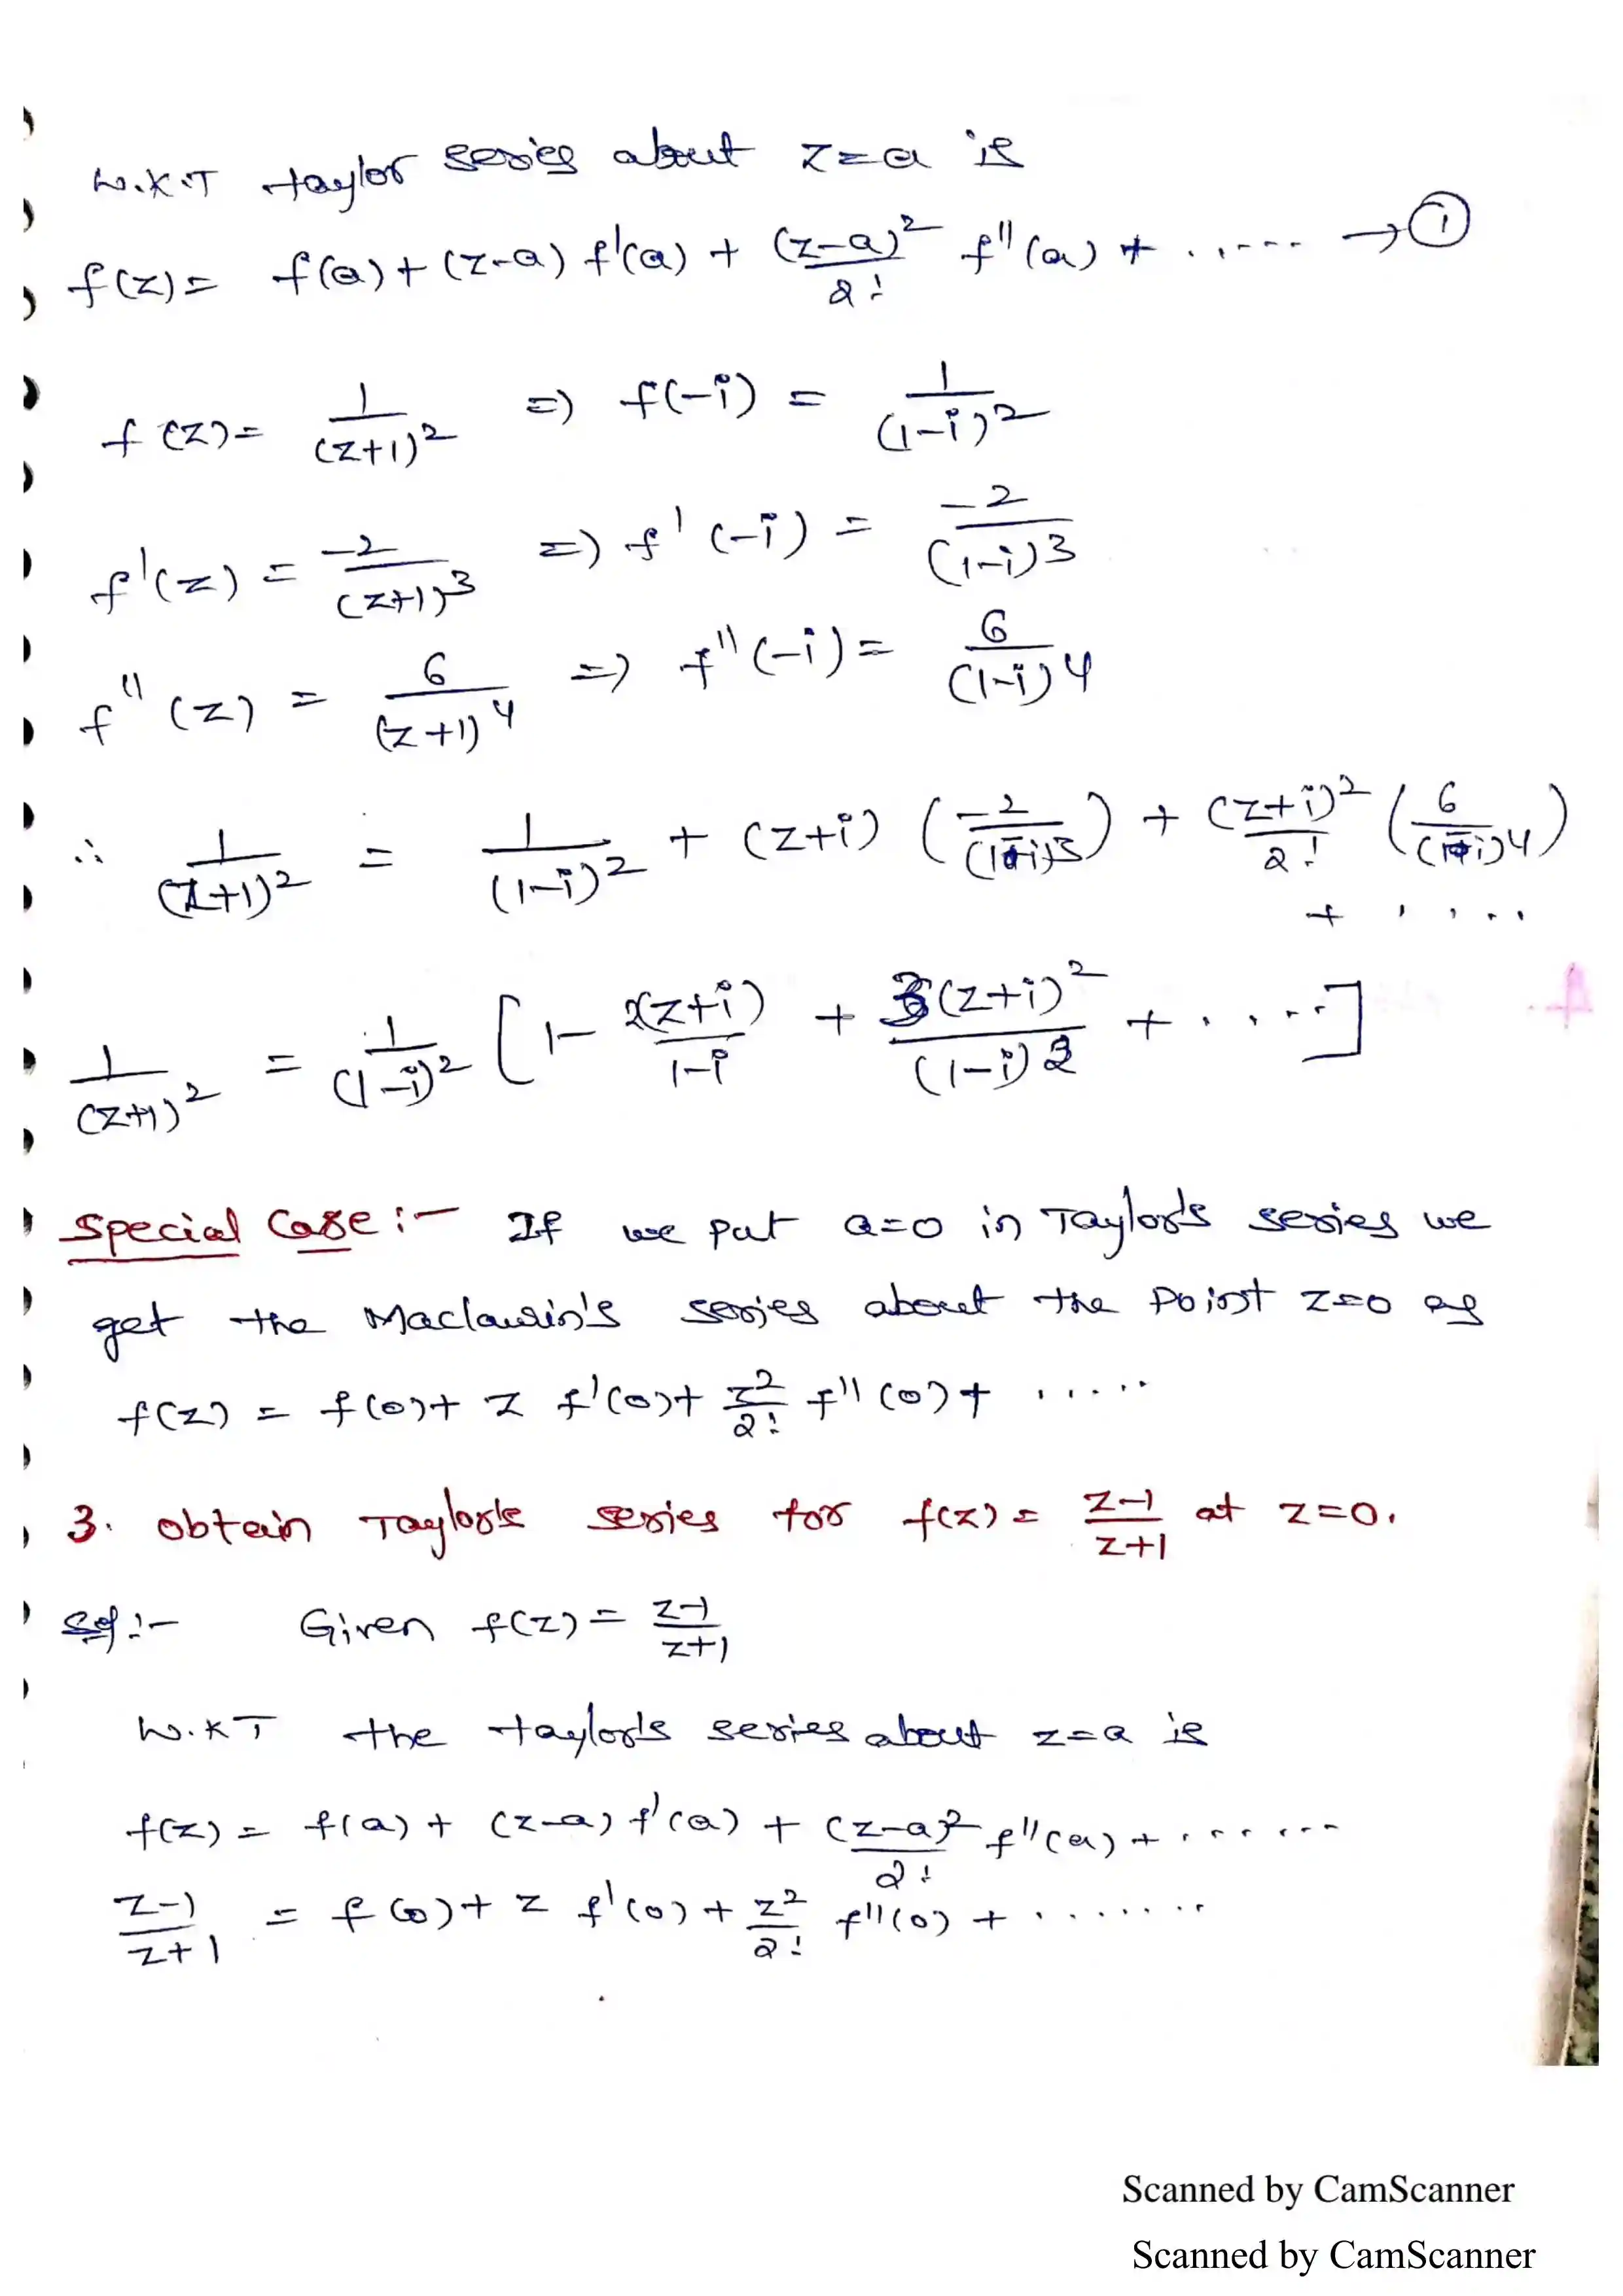 W.K.T taylor series about z=a is
f(z)= f(a)+(z-a) f'(a) + (z-a)²/2! f''(a) + ...... → ①
f(z)= 1/(z+1)² => f(-i) = 1/(1-i)²
f'(z) = -2/(z+1)³ => f'(-i) = -2/(1-i)³
f''(z) = 6/(z+1)⁴ => f''(-i) = 6/(1-i)⁴
∴ 1/(z+1)² = 1/(1-i)² + (z+i) (-2/(1-i)³) + (z+i)²/2! (6/(1-i)⁴)
+ ....
1/(z+1)² = 1/(1-i)² [1- 2(z+i)/1-i + 3(z+i)²/(1-i)2 + ....]
Special Case :- If we put a=0 in Taylor's series we
get the Maclaurin's series about the point z=0 as
f(z) = f(0)+ z f'(0)+ z²/2! f''(0)+ .....
3. obtain Taylor's series for f(z)= z-1/z+1 at z=0.
Sol:- Given f(z)= z-1/z+1
W.KT the taylor's series about z=a is
f(z)= f(a)+ (z-a) f'(a) + (z-a)²/2! f''(a) + ......
z-1/z+1 = f(0)+ z f'(0)+ z²/2! f''(0) + .......
Scanned by CamScanner
Scanned by CamScanner